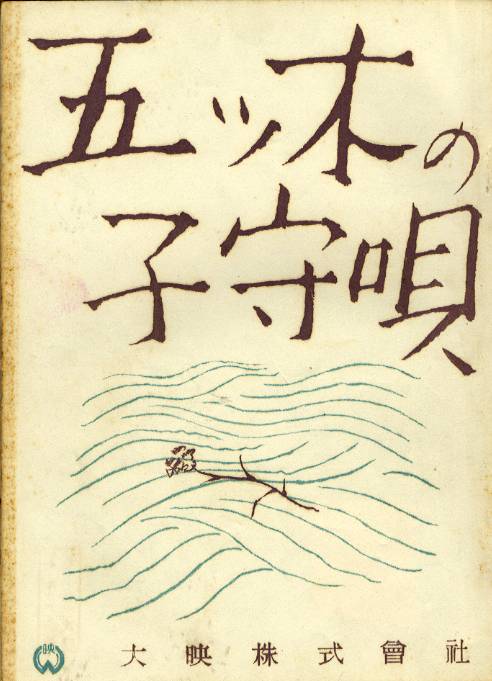 五ッ木の
子守唄
映
大映株式會社